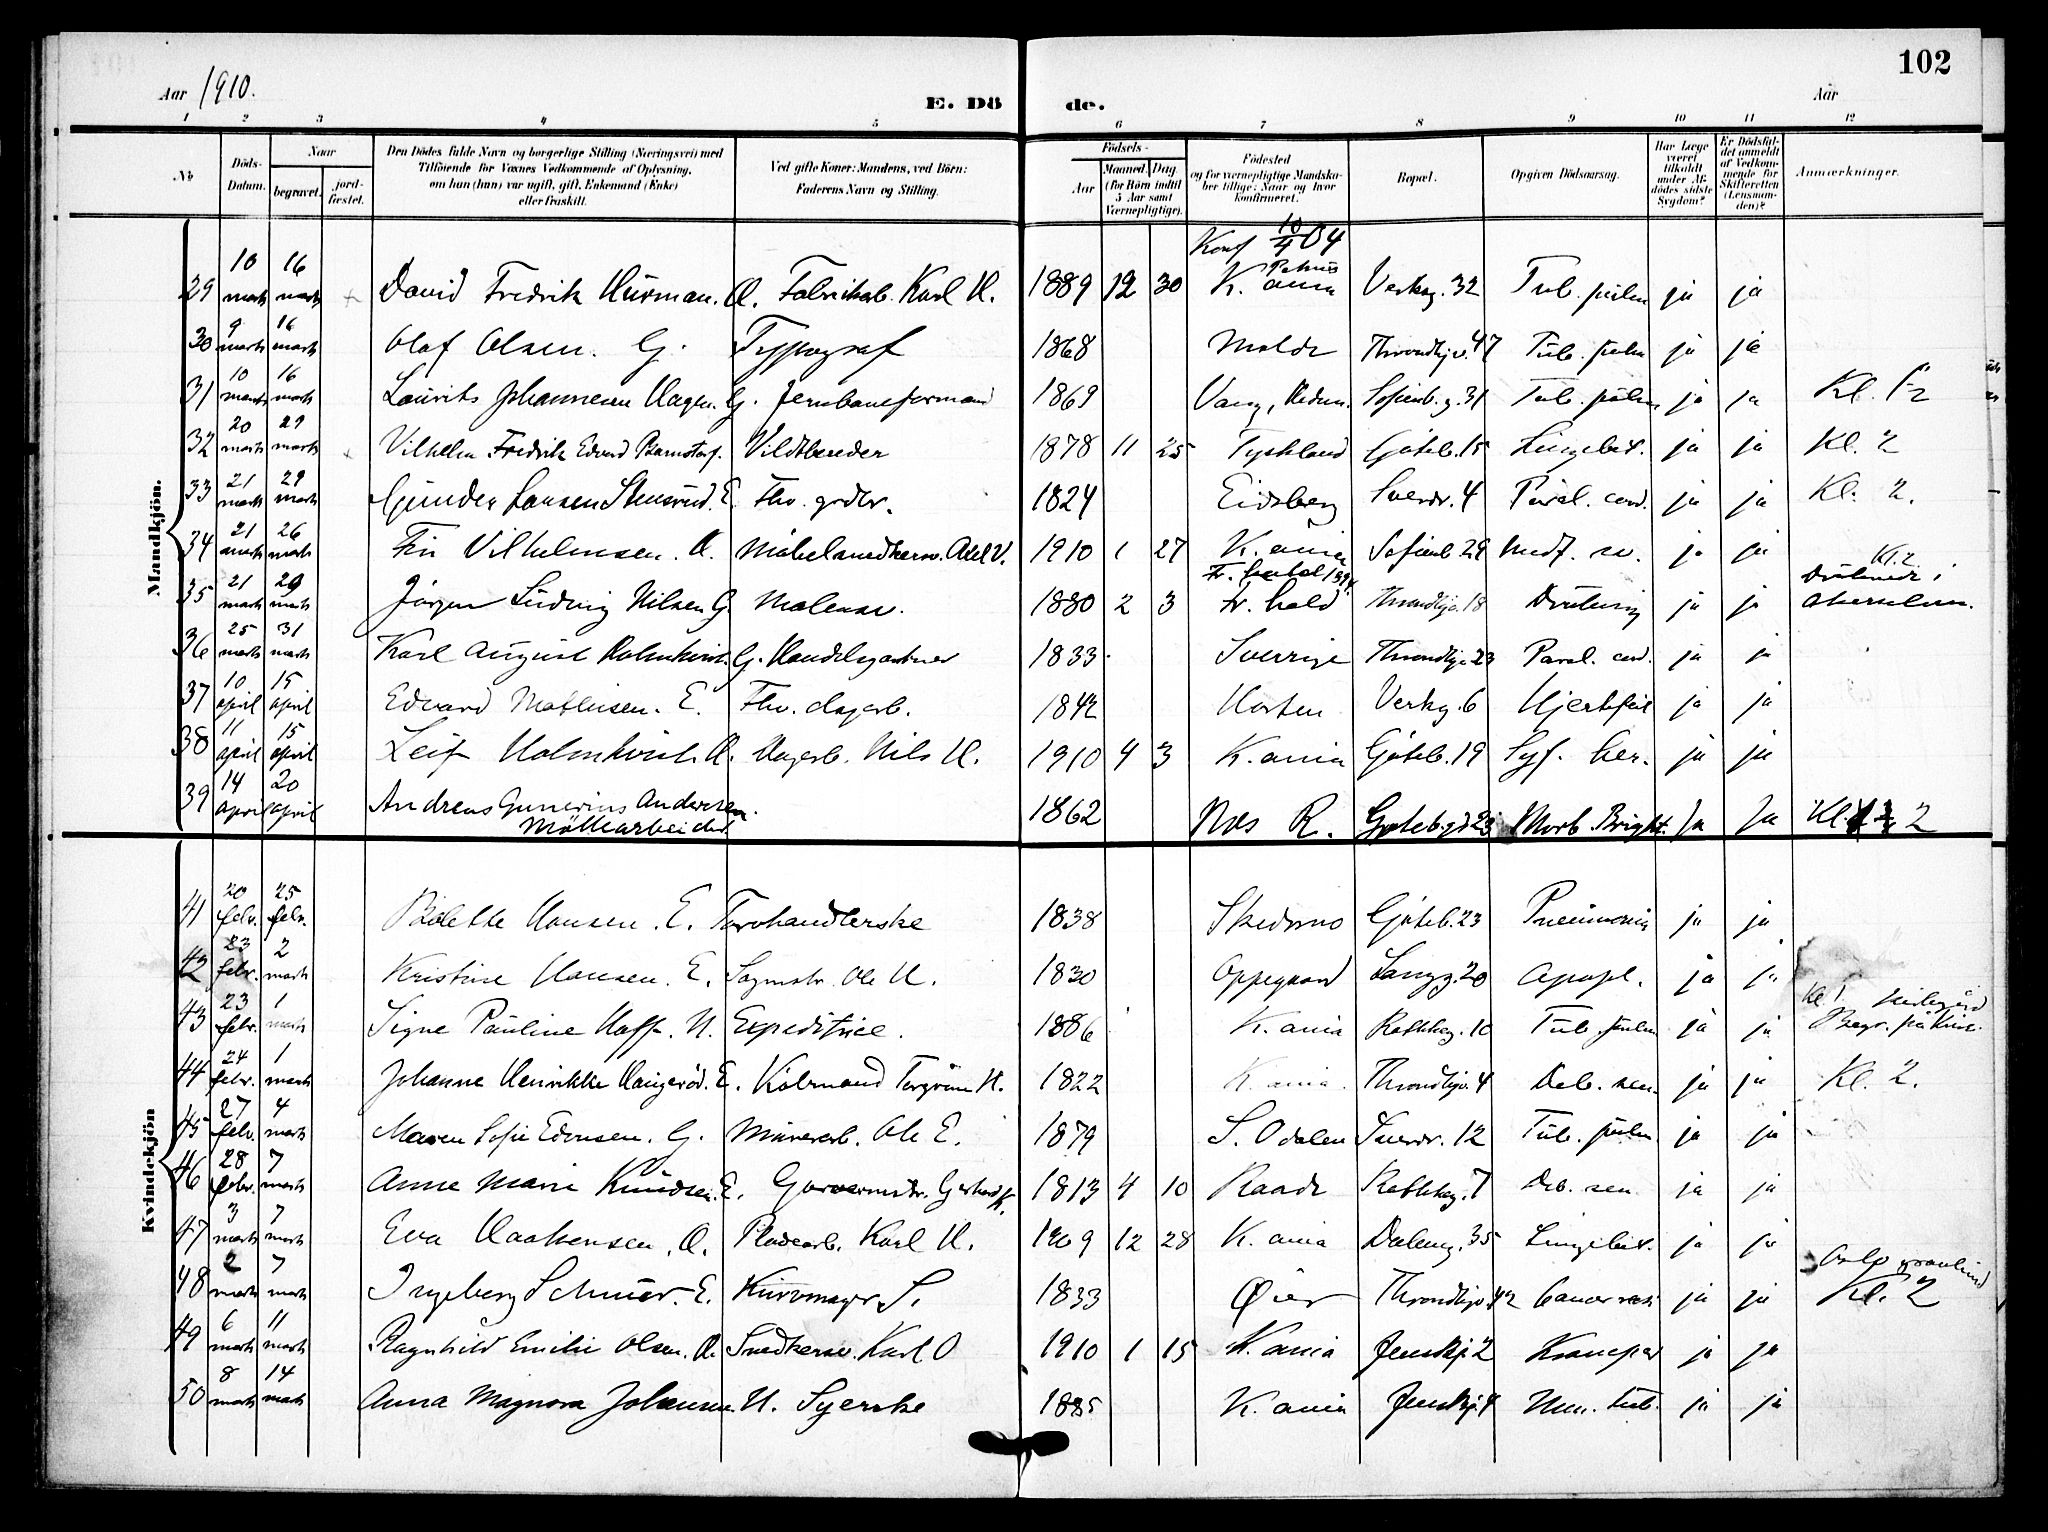 102
Aar 1910.
E. Dö de.
Aar
1 2 3 4 5 6 7 8 9 10 11 12
No
Döds-Datum.
Naar
begravet.
jord-fæstet.
Den Dödes fulde Navn og borgerlige Stilling (Næringsvei) med
Tilföiende for Voxnes Vedkommende af Oplysning,
om han (hun) var ugift, gift, Enkemand (Enke)
eller fraskilt.
Ved gifte Koner: Mandens, ved Börn:
Faderens Navn og Stilling.
Födsels-
Aar
Maaned. Dag.
(for Börn indtil
5 Aar samt
Værnepligtige).
Födested
og for værnepligtige Mandska-
ber tillige: Naar og hvor
konfirmeret.
Bopæl.
Opgiven Dödsaarsag.
Har Læge
været
tilkaldt
under Af-
dödes sidste
Sygdom?
Er Dödsfal-
det anmeldt
af Vedkom-
mende for
Skifteretten
(Lensman-
den)?
Anmærkninger.
Mandkjön.
Konf 10/4 04
29 10 marts 16 marts David Fredrik Hurman. U. Fabrikab. Karl H. 1889 12 30 K.ania Verksg. 32 Tub. pulm ja ja
30 9 marts 16 marts Olaf Olsen. G. Typograf 1868 Molde Throndhjv. 47 Tub. pulm ja ja
31 10 marts 16 marts Laurits Johannesen Hagen. G. Jernbaneformand 1869 Vang, Hedm. Sofienb.g. 31 Tub. pulm ja ja Kl.
32 20 marts 29 marts Vilhelm Fredrik Edvard Vildthandler 1878 11 25 Tyskland Göteb. 15 Lungebet. ja ja Kl. 2
33 21 marts 29 marts Gunder Larsen Stensrud. E. Fhv. grdbr. 1824 Eidsberg Sverdr. 4 Paral. cord. ja ja Kl. 2.
34 21 marts 26 marts Vilhelmsen. U. Möbelsnedkersv. Axel V. 1910 1 27 K.ania Sofienb 29 Medf. sv. ja ja
35 21 marts 29 marts Jörgen Ludvig Nilsen G. Malersv. 1880 2 3 Fr. hald Throndhjv. 18 Drukning ja ja Kl. 2 Druknede i Akerselven.
36 25 marts 31 marts Karl August Holmkvist. G. Handelsgartner 1833 Sverrige Throndhjv. 23 Paral. cord. ja ja
37 10 april 15 april Edvard Mathisen. E. Fhv. dagarb. 1842 Horten Verksg. 6 Hjertefeil ja ja
38 11 april 15 april Leif Holmkvist. U. Dagarb. Nils H. 1910 4 3 K.ania Göteb. 19 Syf. her. ja ja
39 14 april 20 april Andreas Gunerius Andersen.
Möllearbeider 1862 Nes R. Göteb.gd 23 Morb. Bright. Ja Ja Kl. 2
Kvindekjön
41 20 febr. 25 febr. Bolette Hansen. E. Torvhandlerske 1838 Skedsmo Göteb. 23 Pneumonia ja ja
42 23 febr. 2 marts Kristine Hansen. E. Sagmstr. Ole H. 1830 Oppegaard Langg. 20 Apopl. ja ja
43 23 febr. 1 marts Signe Pauline Hoff. U. Expeditrice. 1886 K.ania Rathkeg. 10 Tub. pulm ja ja Kl 1. Begr. på
44 24 febr. 1 marts Johanne Henrikke Haugeröd. E. Kolmand Torgrim H. 1822 K.ania. Throndhjv. 4 Deb. sen. ja ja Kl. 2.
45 27 febr. 4 marts Maren Sofie Evensen. G. Murerarb. Ole E. 1879 S. Odalen Sverdr. 12 Tub. pulm. ja ja
46 28 febr. 7 marts Anne Marie Knudsen. E. Garvermstr. Gerhard K. 1813 4 10 Raade Rathkeg. 7 Deb. sen. ja ja
47 3 marts 7 marts Eva Haakensen. U. Pladearb. Karl H. 1909 12 28 K.ania Daleng. 35 Lungebet. ja ja
48 2 marts 7 marts Ingeborg Schmör. E. Kurvmager S. 1833 Öier Throndhjv. 42 Cancer ja ja Oslo gravlund Kl. 2
49 6 marts 11 marts Ragnhild Emilie Olsen. U. Snedkersv. Karl O 1910 1 15 K.ania Jenskj. 2 Kramper ja ja
50 8 marts 14 marts Anna Magnora Johansen. U. Syerske 1885 K.ania Jenskj. 4 tub. ja ja